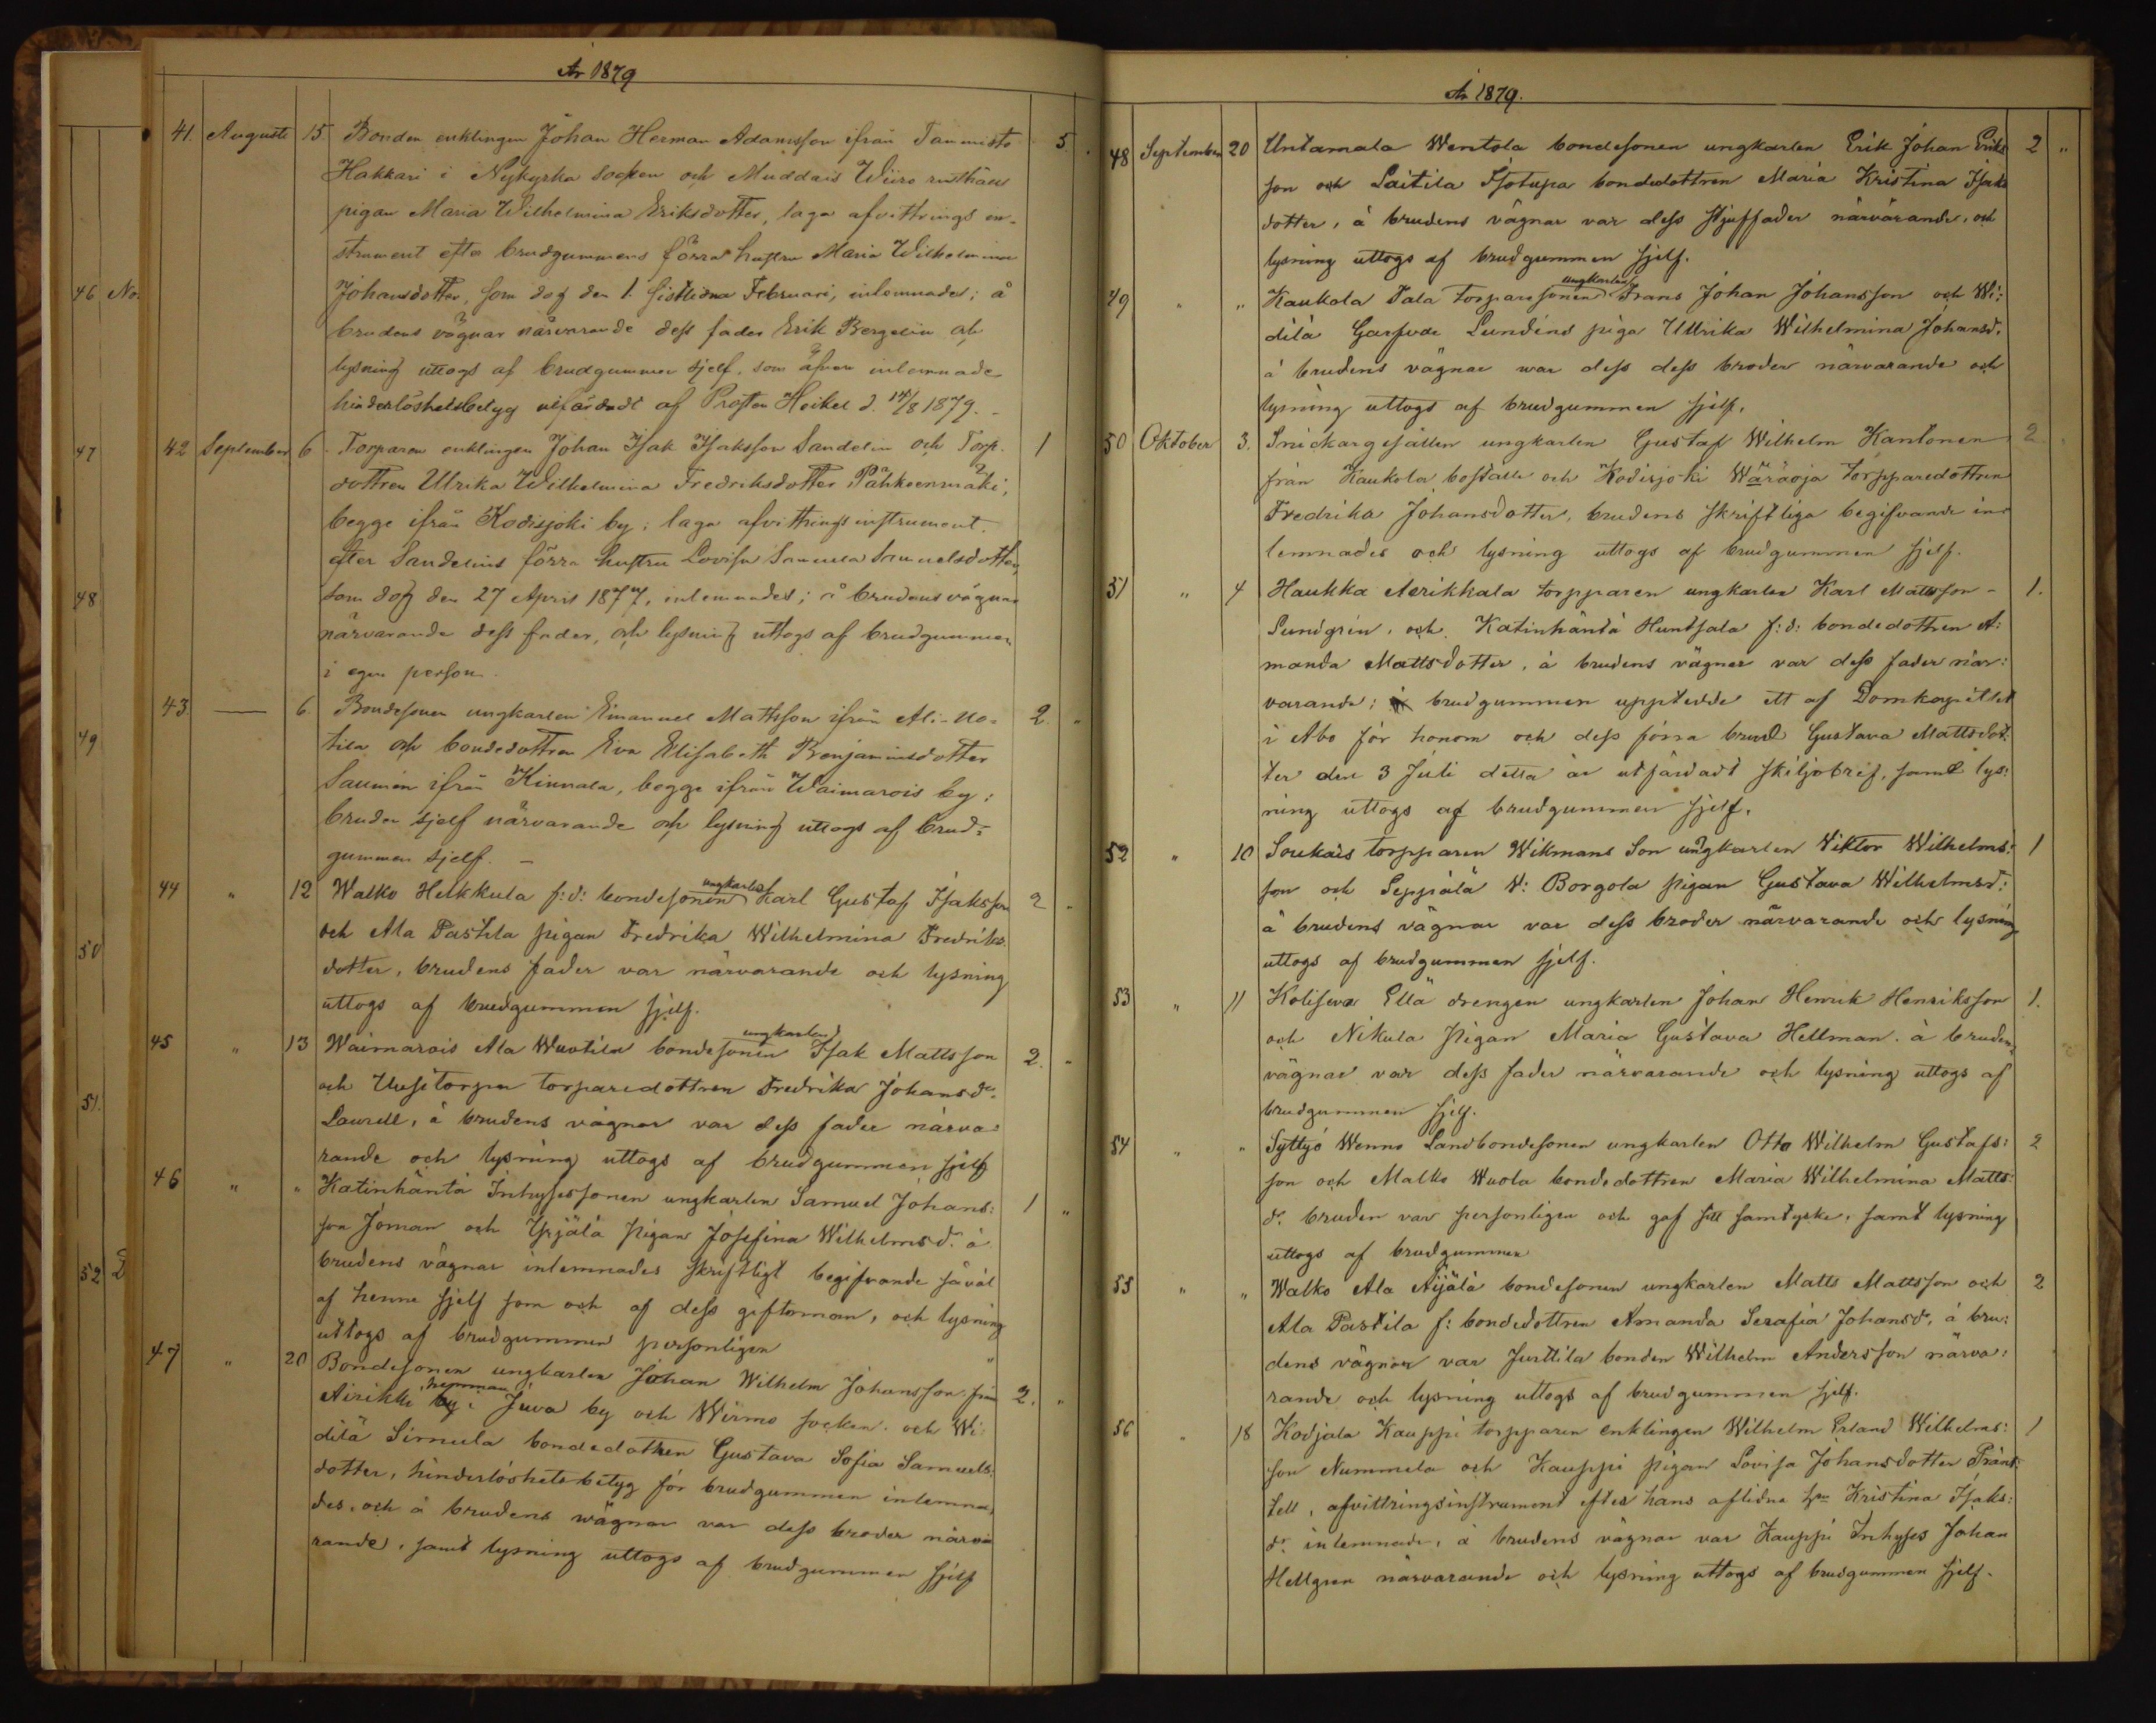 År 1879
41. Augusti 15 Bonden enklingen Johan Herman Adamsson ifrån Tammisto 5.
Hakkari i Nykyrka socken och Muddais Wiiro rusthåll
pigan Maria Wilhelmina Eriksdotter, laga afvittrings in-
strument efter brudgummens förra hustru Maria Wilhelmina
Johansdotter, som dog den 1. sistlidna Februari, inlemnades; å
brudens vägnar närvarande dess fader Erik Bergelin och
lysning uttogs af brudgummen sjelf, som äfven inlemnade
hinderlöshetsbetyg utfärdadt af Prosten Heikel d. 14/8 1879. -
42 September 6. Torparen enklingen Johan Isak Isaksson Sandelin och Torp. 1
dottren Ulrika Wilhelmina Fredriksdotter Pähkeenmäki,
begge ifrån Kodisjoki by; laga afvittringsinstrument
efter Sandelins förra hustru Lovisa Samuelsdotter,
som dog den 27 April 1877, inlemnades; å brudens vägnar
närvarande dess fader, och lysning uttogs af brudgummen
i egen person.
43 — 6. Bondesonen ungkarlen Emanuel Mattsson ifrån Ali-Uo- 2. "
tila och bondedottren Eva Elisabeth Benjaminsdotter
Saumén ifrån Kinnala, begge ifrån Waimarois by;
bruden sjelf närvarande och lysning uttogs af brud-
gummen sjelf. -
44 " 12 Walko Heikkula f:d: bondesonen ungkarlen Karl Gustaf Isaksson 2 "
och Ala Pastila pigan Fredrika Wilhelmina Fredriks
dotter, brudens fader var närvarande och lysning
uttogs af brudgummen sjelf.
45 " 13 Waimarois Ala Wuotila bondesonen ungkarlen Isak Mattsson 2. "
och Uusitorpa torparedottren Fredrika Johansd:
Laurell, å brudens vägnar var dess fader närva-
rande och lysning uttogs af brudgummen sjelf
46 " " Katinhäntä Inhysessonen ungkarlen Samuel Johans: 1 "
son Joman och Ypjälä pigan Josefina Wilhelmsd: å
brudens vägnar inlemnades skriftligt begifvande såväl
af henne sjelf som och af dess giftoman, och lysning
uttogs af brudgummen personligen
47 " 20 Bondesonen ungkarlen Johan Wilhelm Johansson från 2. "
Airikki hemman i Juva by och Wirmo socken och Wi:
dilä Sirnula bondedottren Gustava Sofia Samuels:
dotter, hinderlöshetsbetyg för brudgummen inlemna
des, och å brudens wägnar var dess broder närva
rande, samt lysning uttogs af brudgummen sjelf
År 1879.
48 September 20 Untamala Wentola bondesonen ungkarlen Erik Johan Eriks 2 "
son och Laitila Isotupa bondedottren Maria Kristina Isaks
dotter, å brudens vägnar var dess stjuffader närvarande, och
lysning uttogs af brudgummen sjelf.
49 " " Kaukola Tala torparesonen ungkarlen Frans Johan Johansson och Wi:
dilä Garfvar Lundéns piga Ullrika Wilhelmina Johansd.
å brudens vägnar war dess dess broder närvarande och
lysning uttogs af brudgummen sjelf.
50 Oktober 3. Snickargesällen ungkarlen Gustaf Wilhelm Kantonen 2
från Kaukola boställe och Kodisjoki Wäräoja torpparedottren
Fredrika Johansdotter, brudens skriftliga begifvande in-
lemnades och lysning uttogs af brudgummen sjelf.
51 " 4 Haukka Aerikkala torpparen ungkarlen Karl Mattsson - 1.
Lundgrén, och Katinhäntä Huntsala f:d: bondedottren A:
manda Mattsdotter, å brudens vägnar var dess fader när:
varande; brudgummen uppteddde ett af Domkapitlet
i Åbo för honom och dess förra brud Gustava Mattsdot
ter den 3 Juli detta år utfärdadt skiljobref, samt lys:
ning uttogs af brudgummen sjelf.
52 " 10 Soukais torpparen Wikmans Son ungkarlen Wiktor Wilhelms: 1
son och Seppälä W: Borgola pigan Gustava Wilhelmsd:
å brudens vägnar var dess broder närvarande och lysning
uttogs af brudgummen sjelf.
53 " 11 Kolisewa Ellä drengen ungkarlen Johan Henrik Henriksson 1.
och Nikula pigan Maria Gustava Hellman. å brudens
vägnar var dess fader närvarande och lysning uttogs af
brudgummen sjelf.
54 " " Syttyö Wenno Landbondesonen ungkarlen Otto Wilhelm Gustafs: 2
son och Malko Wuola bondedottren Maria Wilhelmina Matts:
dr. bruden var personligen och gaf sitt samtycke, samt lysning
uttogs af brudgummen
55 " " Walko Ala Äijälä bondesonen ungkarlen Matts Mattsson och 2
Ala Pastila f: bondedottren Amanda Serafia Johansdr, å bru:
dens vägnar var Jurttila bonden Wilhelm Andersson närva:
rande och lysning uttogs af brudgummen sjelf.
56 " 18 Kodjala Kauppi torpparen enklingen Wilhelm Erland Wilhelms: 1
son Nummela och Kauppi pigan Lovisa Johansdotter Fränt
tell, afvittringsinstrument efter hans aflidna h:u Kristina Isaks:
dr. inlemnade, å brudens vägnar var Kauppi Inhyses Johan
Hellgren närvarande och lysning uttogs af brudgummen sjelf.
46 No:
47
48
49
50
51.
52